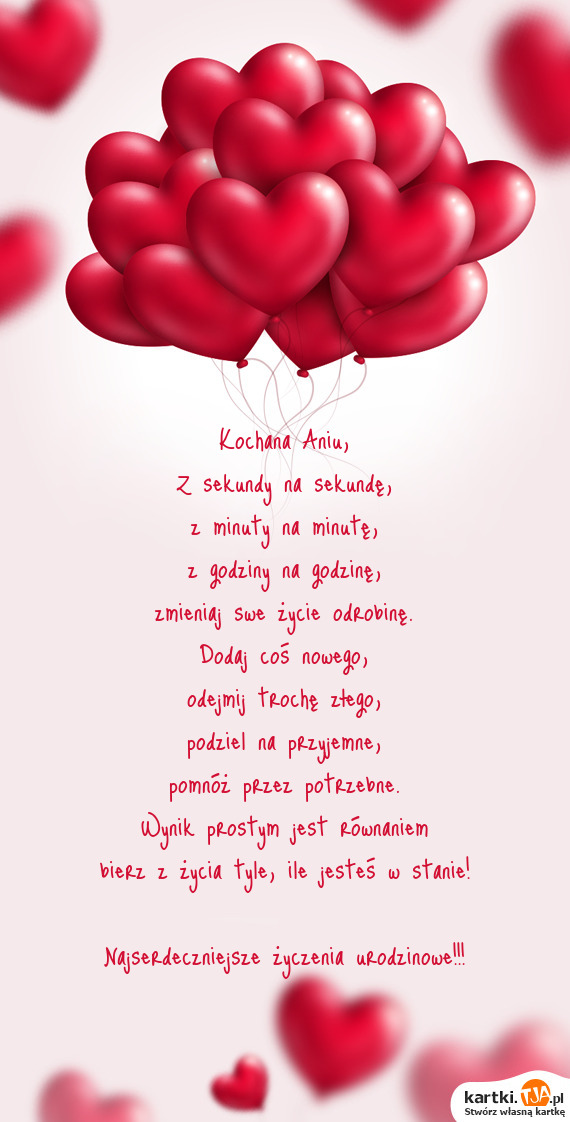 Kochana Aniu,
Z sekundy na sekundę,
z minuty na minutę,
z godziny na godzinę,
zmieniaj swe życie odrobinę.
Dodaj coś nowego,
odejmij trochę złego,
podziel na przyjemne,
pomnóż przez potrzebne.
Wynik prostym jest równaniem
bierz z życia tyle, ile jesteś w stanie!
Najserdeczniejsze życzenia urodzinowe!!!
kartki.TJA.pl
Stwórz własną kartkę